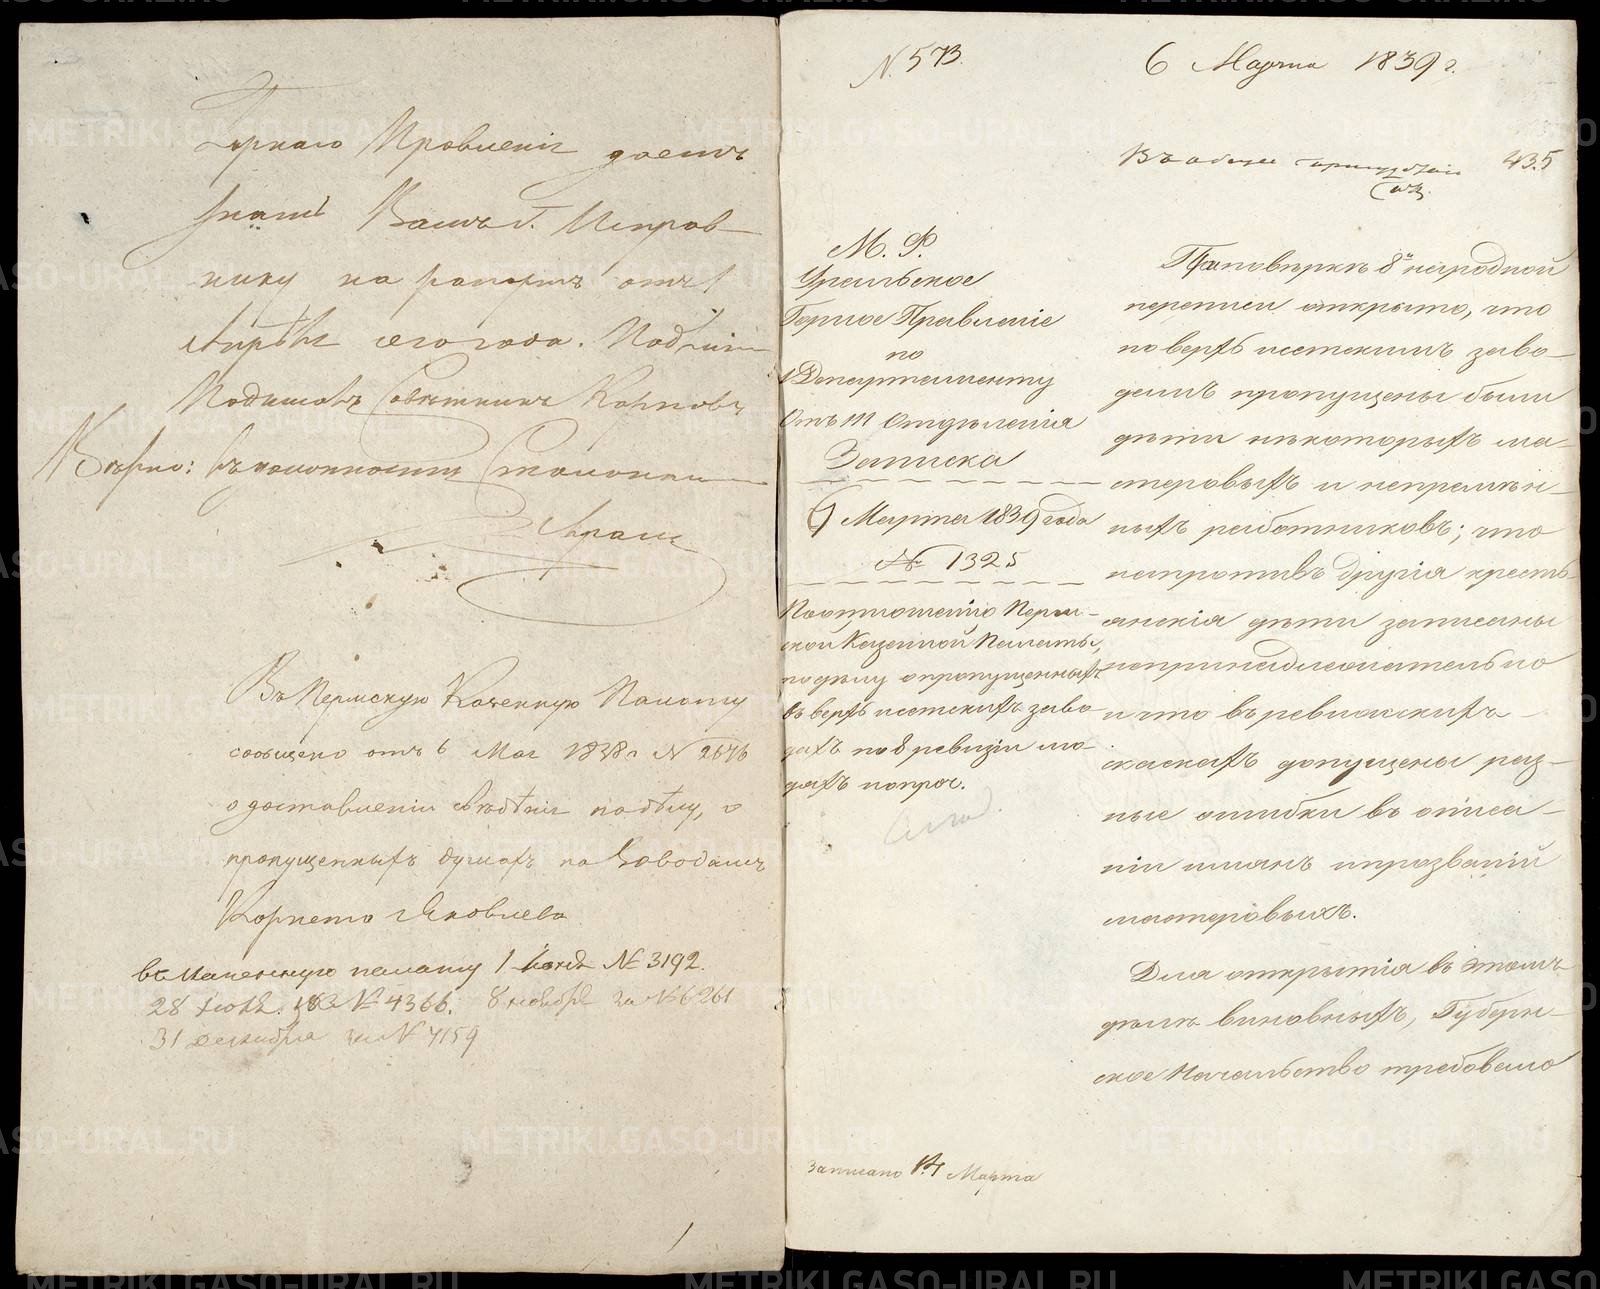 Горнаго Правленія даетъ
знать Вамъ Г. Исправ
нику на рапортъ отъ 1
Апрѣля сего года. Подлин
Подписалъ Совѣтникъ Карповъ
Вѣрно: въ должности
Въ Пермскую Казенную Палату
сообщено отъ 6 Мая 1838 г N 2676
о доставленіи свѣдѣнія по дѣлу, о
пропущенныхъ душахъ по Заводамъ
Корнета Яковлева
въ Казенную палату 1 Іюня № 3192.
28 Іюля. за № 4366. 8 ноября за №6261
31 декабря за № 7159
N. 573
6 Марта 1839 г.
Въ общее присутствіе
435
М. Ф.
Уральское
Горное Правленіе
по
1 Департаменту
Отъ III Отдѣленія
Записка
6 Марта 1839 года
№ 1325
По отношенію Перм-
ской Казенной Палаты,
по дѣлу о пропущенныхъ
въ верхъ исетскихъ заво
дахъ по 8 ревизіи лю-
дяхъ и проч.
При повѣркѣ 8й народной
переписи открыто, что
по верхъ исетскимъ заво-
дамъ пропущены были
дѣти нѣкоторыхъ ма-
стеровыхъ и непремѣн-
ныхъ работниковъ; что
напротивъ другія кресть-
янскія дѣти записаны
не принадлежательно
и что въ ревижскихъ
сказкахъ допущены раз-
ные ошибки въ описа-
ніи именъ и прозваній
мастеровыхъ.
Для открытія въ этомъ
дѣлѣ виновныхъ, Губерн-
ское Начальство требовало
Записано 14 Марта
METRIKI.GASO-URAL.RU